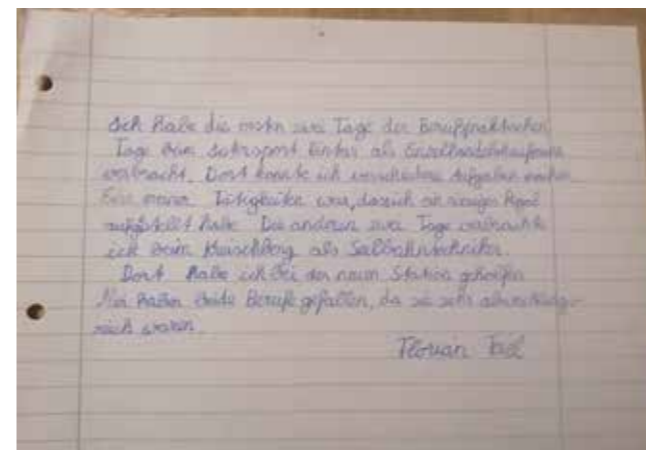 Ich habe die ersten zwei Tage der Berufspraktischen
Tage beim Intersport als Einzelhandelskaufmann
verbracht. Dort konnte ich verschiedene Aufgaben machen.
Eine meiner Tätigkeiten war, dass ich ein Regal
aufgestellt habe. Die anderen zwei Tage verbrachte
ich beim Kreischberg als Seilbahntechniker.
Dort habe ich bei der neuen Station geholfen.
Mir haben beide Berufe gefallen, da sie sehr abwechslungs-
reich waren.
Florian